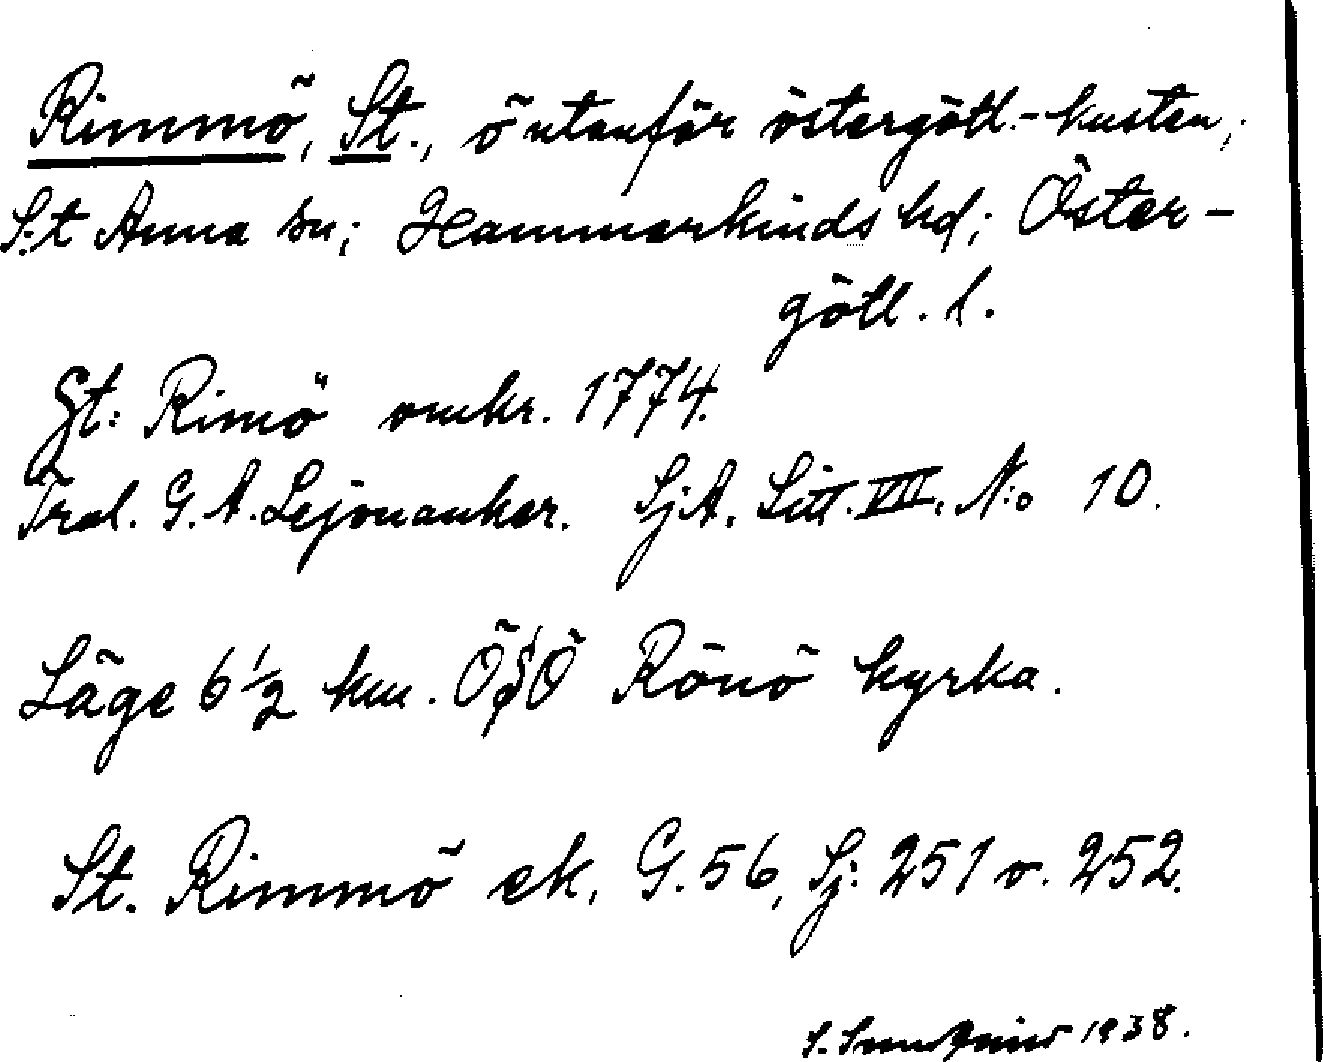 Rimmö, St., ö utanför östergötl.-kusten,
S:t Anna sn; Hammarkinds hd; Öster-
götl. l.
St: Rimö omkr. 1774.
Trol. G. A. Lejonankar. SjA. Litt. VII. N:o 10.
Läge 6 1/2 km. ÖSÖ Rönö kyrka.
St. Rimmö ek. G. 56, Sj: 251 o. 252.
S. 1938.